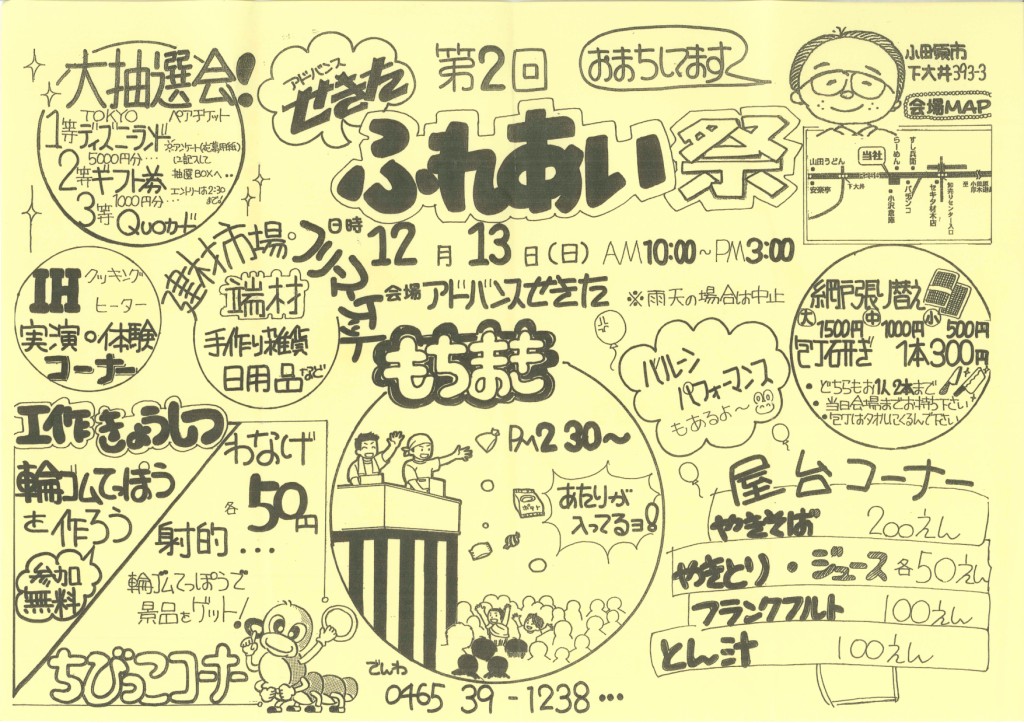 大抽選会!
TOKYO
1等 ディズニーランド
ペアチケット
5000円分・・・
2等 ギフト券
1000円分・・・
3等 Quoカード
※アンケート(応募用紙)
に記入して
抽選BOXへ・・
エントリーは2:30
までん
アドバンス
せきた
第2回
おまちしてます
ふれあい祭
小田原市
下大井393-3
会場MAP
山田うどん
安楽亭
下大井
当社
らーめん
すし兵衛
小沢倉庫
パチンコ
セキタ材木店
卸売りセンター入口
至 小田原
厚木道路
日時 12月13日(日) AM10:00~PM3:00
会場 アドバンスせきた ※雨天の場合は中止
IH
クッキング
ヒーター
実演・体験
コーナー
建材市場・フリーマーケット
端材
手作り雑貨
日用品など
もちまき
PM2 30~
あたりが
入ってるヨ!
バルーン
パフォーマンス
もあるよ~
網戸張り替え
大1500円 中1000円 小500円
包丁研ぎ 1本300円
・どちらもお1人2本まで
・当日会場までお持ち下さい
・包丁はタオルにくるんで下さい
工作きょうしつ
輪ゴムてっぽう
を作ろう
参加
無料
わなげ
各50円
射的・・・
輪ゴムてっぽうで
景品をゲット!
ちびっこコーナー
屋台コーナー
やきそば 200えん
やきとり・ジュース 各50えん
フランクフルト 100えん
とん汁 100えん
でんわ
0465 39-1238・・・